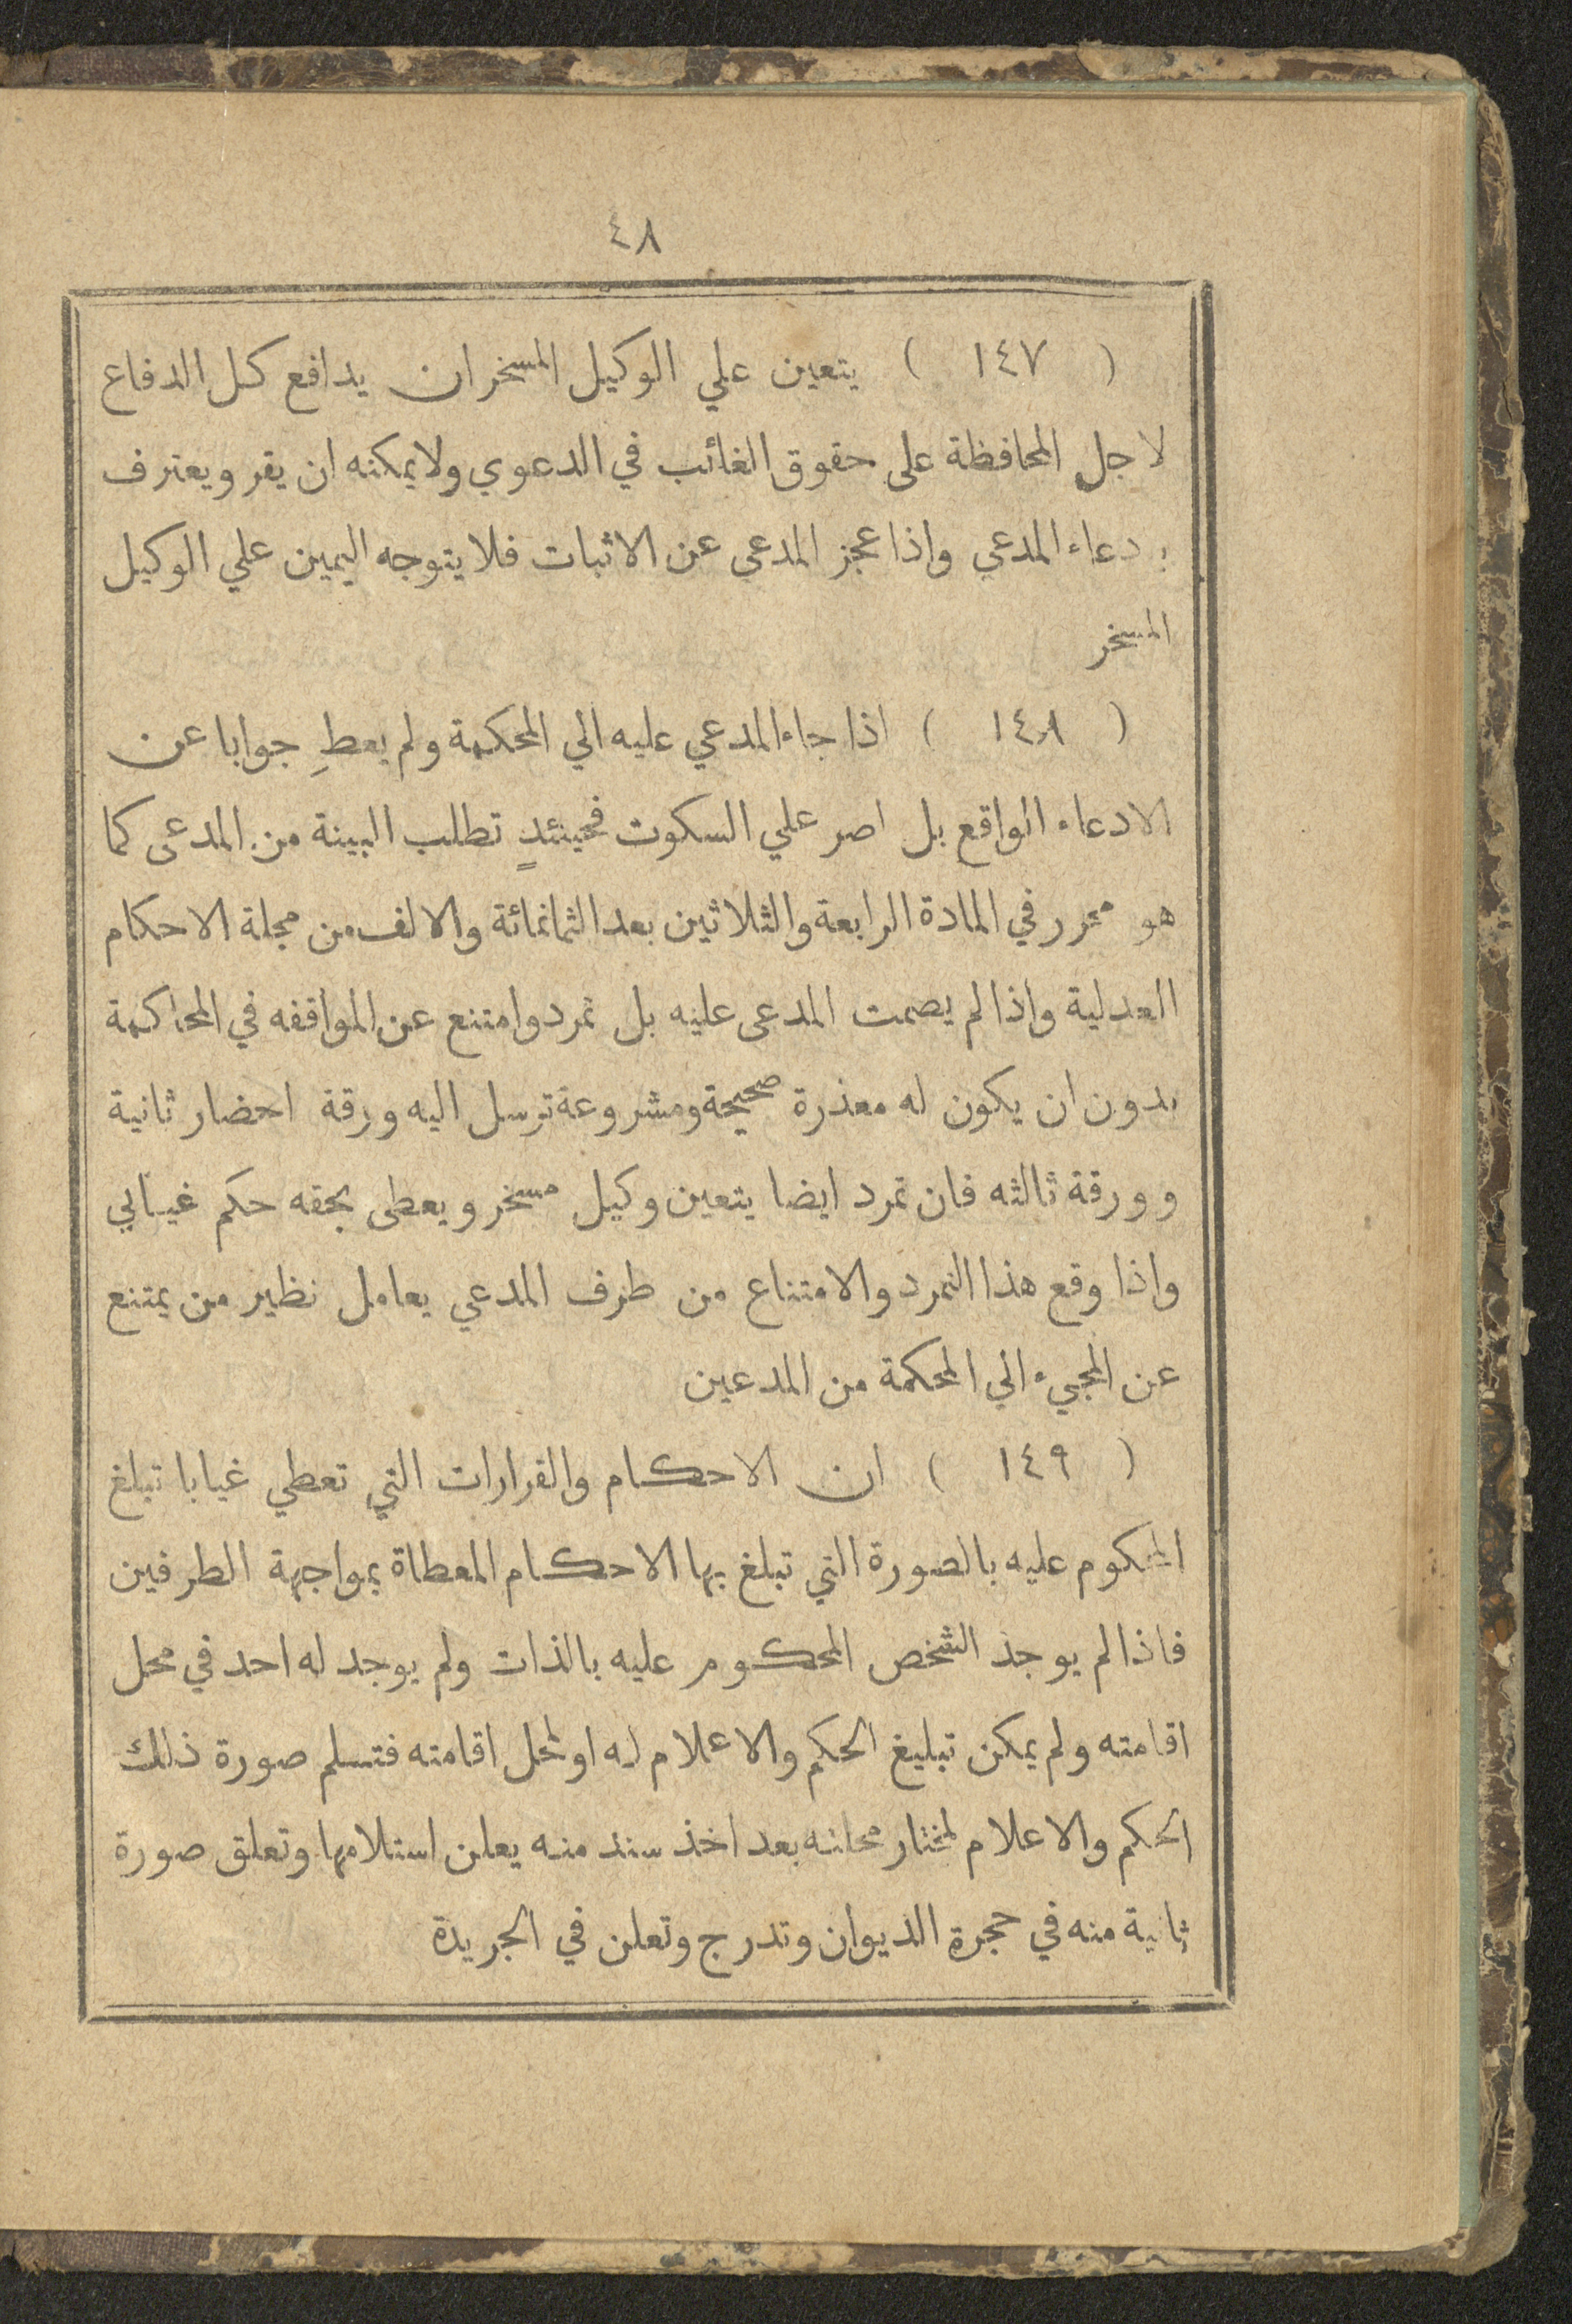 ٤٨
( ١٤٧ ) يتعين علي الوكيل المسخر ان يدافع كل الدفاع
لاجل المحافظة على حقوق الغائب في الدعوي ولا يمكنه ان يقر ويعترف
بدعاء المدعي واذا عجز المدعى عن الاثبات فلا يتوجه اليمين علي الوكيل
المسخر
( ١٤٨ ) اذا جاء المدعي عليه الي المحكمة ولم يعطِ جوابا عن
الادعاء الواقع بل اصر علي السكوت فحينئدٍ تطلب البينة من المدعى كما
هو محرر في المادة الرابعة والثلاثين بعد الثمانمائة والالف من مجلة الاحكام
العدلية واذا لم يصمت المدعى عليه بل تمرد وامتنع عن المواقفه في المحاكمة
بدون ان يكون له معذرة صحيحة ومشروعة ترسل اليه ورقة احضار ثانية
وورقة ثالثه فان تمرد ايضا يتعين وكيل مسخر ويعطى بحقه حكم غيابي
واذا وقع هذا التمرد والامتناع من طرف المدعي يعامل نظير من يمتنع
عن المجيء الي المحكمة من المدعين
( ١٤٩ ) ان الاحكام والقرارات التي تعطي غيابا تبلغ
المحكوم عليه بالصورة التي تبلغ بها الاحكام المعطاة بمواجهة الطرفين
فاذا لم يوجد الشخص المحكوم عليه بالذات ولم يوجد له احد في محل
اقامته ولم يمكن تبليغ الحكم والاعلام له او لمحل اقامته فتسلم صورة ذلك
الحكم والاعلام لمختار محلته بعد اخذ سند منه يعلن استلامها وتعلق صورة
ثانية منه في حجرة الديوان وتدرج وتعلن في الجريدة